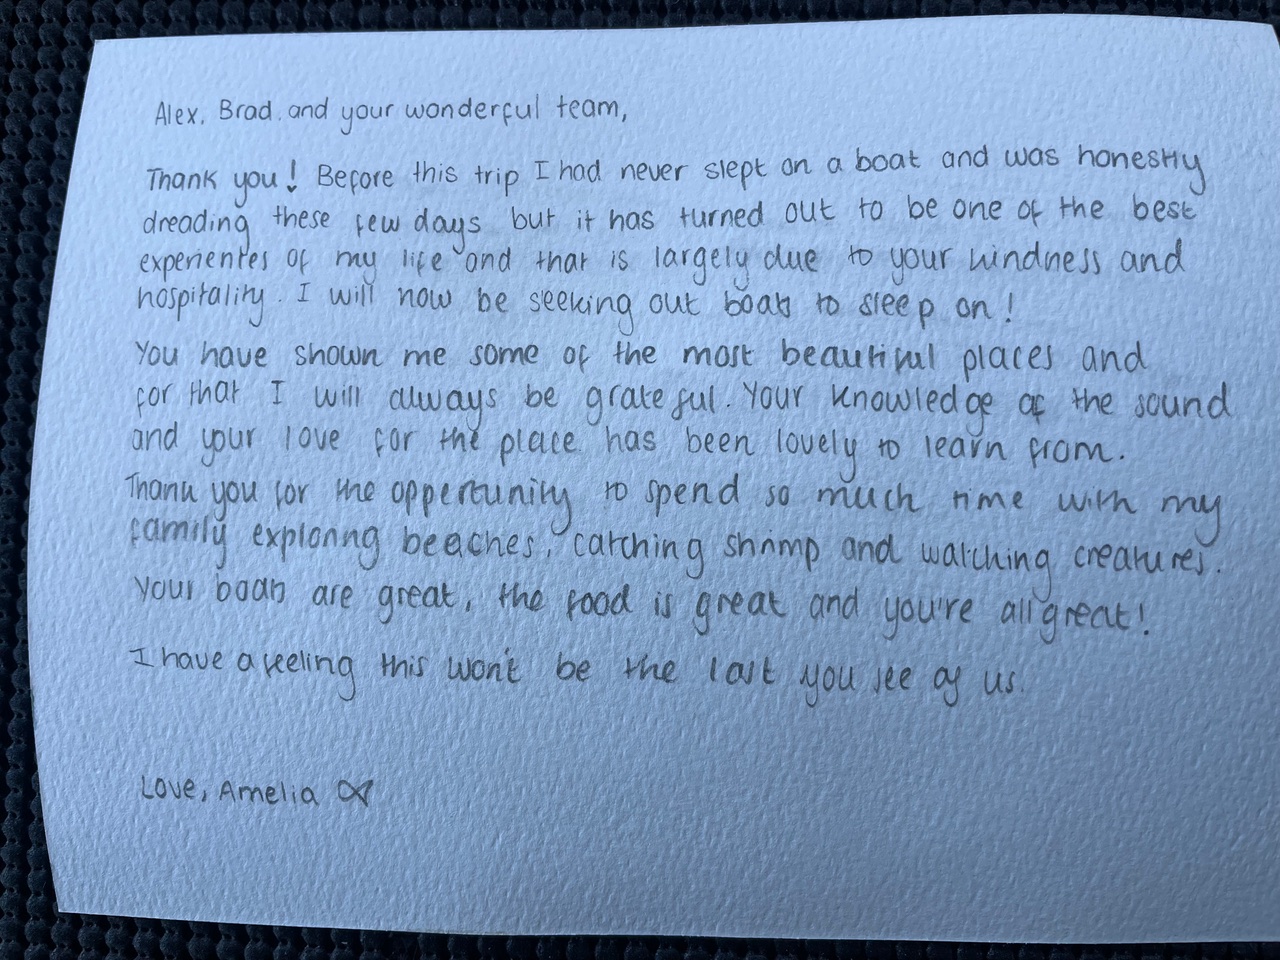 Alex, Brad and your wonderful team,
Thank you! Before this trip I had never slept on a boat and was honestly
dreading these few days but it has turned out to be one of the best
experiences of my life and that is largely due to your kindness and
hospitality. I will now be seeking out boats to sleep on!
You have shown me some of the most beautiful places and
for that I will always be grateful. Your knowledge of the sound
and your love for the place has been lovely to learn from.
Thank you for the oppertunity to spend so much time with my
family exploring beaches, catching shrimp and watching creatures.
Your boats are great, the food is great and you're all great!
I have a feeling this won't be the last you see of us.
Love, Amelia